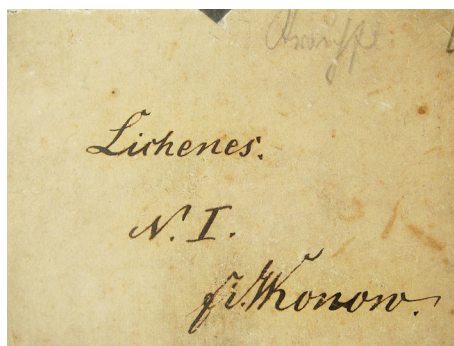 Lichenes.
N. I.
Fr. Konow.